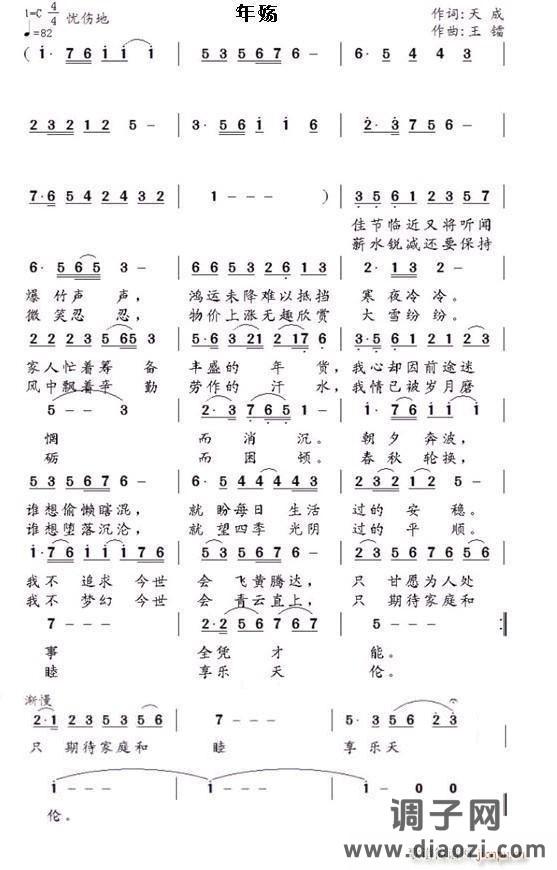 年殇
1=C 4/4 忧伤地 作词:天 成
♩=82 作曲:王 镭
( 1· 7 6 1 i i | 5 3 5 6 7 6 - | 6· 5 4 4 3 |
2 3 2 1 2 5 - | 3· 5 6 i i 6 | 2·3 7 5 6 - |
7·6 5 4 2 4 3 2 | 1 - - - ) | 3 5 6 1 2 3 5 7 |
佳节临近又将听闻
薪水锐减还要保持
6· 5 6 5 3 - | 6 5 6 5 3 2 6 1 3 | 2· 1 3 2 - |
爆竹声 声, 鸿运未降难以抵挡 寒夜冷冷。
微笑忍 忍, 物价上涨无趣欣赏 大雪纷纷。
2 2 2 3 5 6 5 3 | 5·6 3 2 1 2 1 7 6 | 3·5 6 1 2 3 5 6 |
家人忙着筹 备 丰盛的 年 货, 我心却因前途迷
风中飘着辛 勤 劳作的 汗 水, 我情已被岁月磨
5 - - 3 | 2· 3 7 6 5 1 - | 1· 7 6 i i i |
惘 而 消 沉。 朝夕 奔波,
砺 而 困 顿。 春秋 轮换,
5 3 5 3 5 6 7 6 - | 6· 5 4 4 4 4 3 | 2 3 2 1 2 5 - |
谁想偷懒瞎混, 就 盼每日 生活 过的 安 稳。
谁想堕落沉沦, 就 望四季 光阴 过的 平 顺。
1·7 6 i i i 7 6 | 5 3 5 3 5 6 7 6 - | 2 2 3 5 7 6 5 6 |
我不 追求 今世 会 飞黄腾达, 只 甘愿为人处
我不 梦幻 今世 会 青云直上, 只 期待家庭和
5 - - - | 2·2 5 6 7 6 | 5 - - - :‖
事 全凭 才 能。
睦 享乐 天 伦。
渐慢
2·1 2 3 5 3 5 6 | 7 - - - | 5· 3 5 6 2 3 |
只 期待家庭和 睦 享 乐天
i - - - | i - - - | i - 0 0 ‖
伦。
调子网
www.diaozi.com